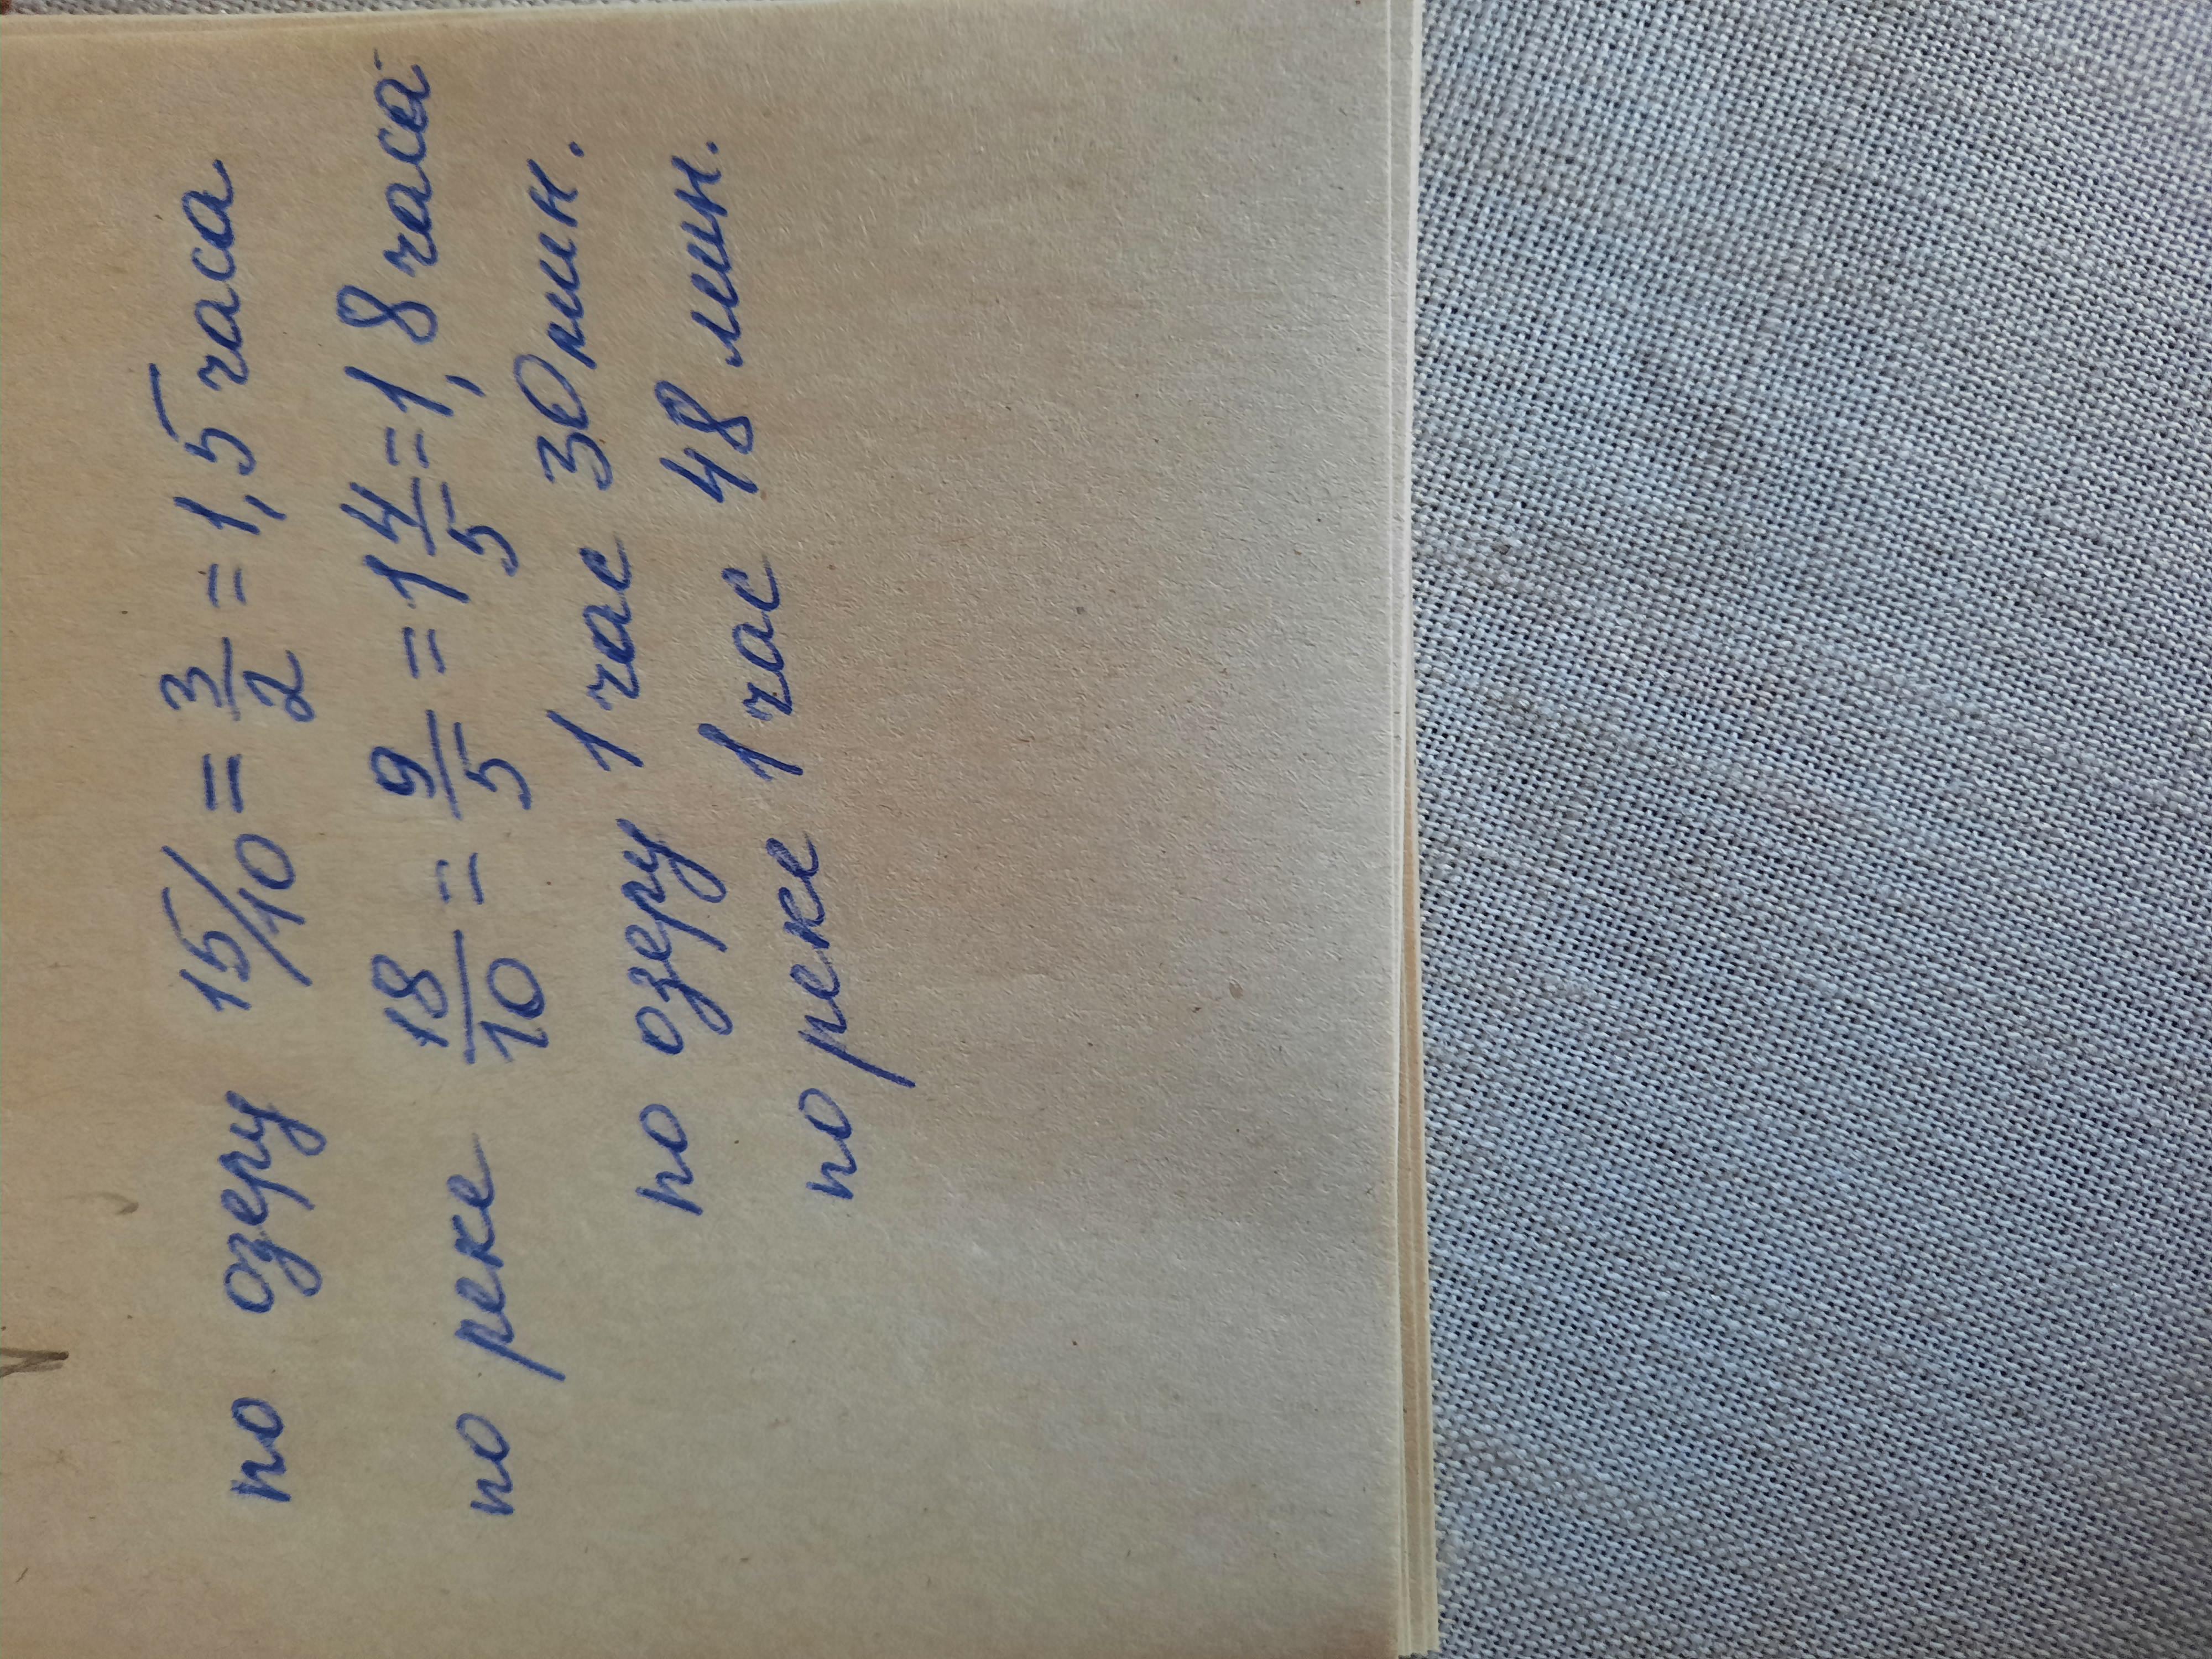 по озеру 15/10 = 3/2 = 1,5 часа
по реке 18/10 = 9/5 = 1 4/5 = 1,8 часа
по озеру 1 час 30 мин.
по реке 1 час 48 мин.